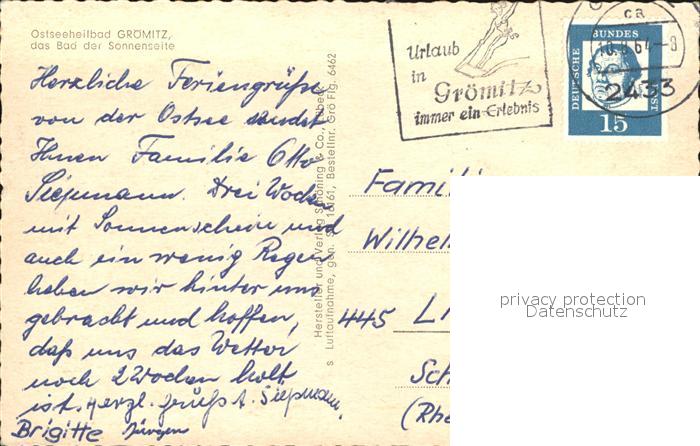 Ostseeheilbad GRÖMITZ,
das Bad der Sonnenseite
Urlaub
in
Grömitz
immer ein Erlebnis
CA
64-8
2433
DEUTSCHE
BUNDES
POST
15
Herzliche Feriengrüße
von der Ostsee sendet
Ihnen Familie Otto
Siepmann. Drei Wochen
mit Sonnenschein und
auch ein wenig Regen
haben wir hinter uns
gebracht und hoffen,
daß uns das Wetter
noch 2 Wochen hold
ist. Herzl. Grüße A. Siepmann,
Brigitte Jürgen
Hersteller und Verlag Schöning & Co., Lübeck
s Luftaufnahme, gen. SH 16/61, Bestellnr. Grö Flg. 6462
Famili
Wilhel
445 Li
Sch
(Rhe
privacy protection
Datenschutz